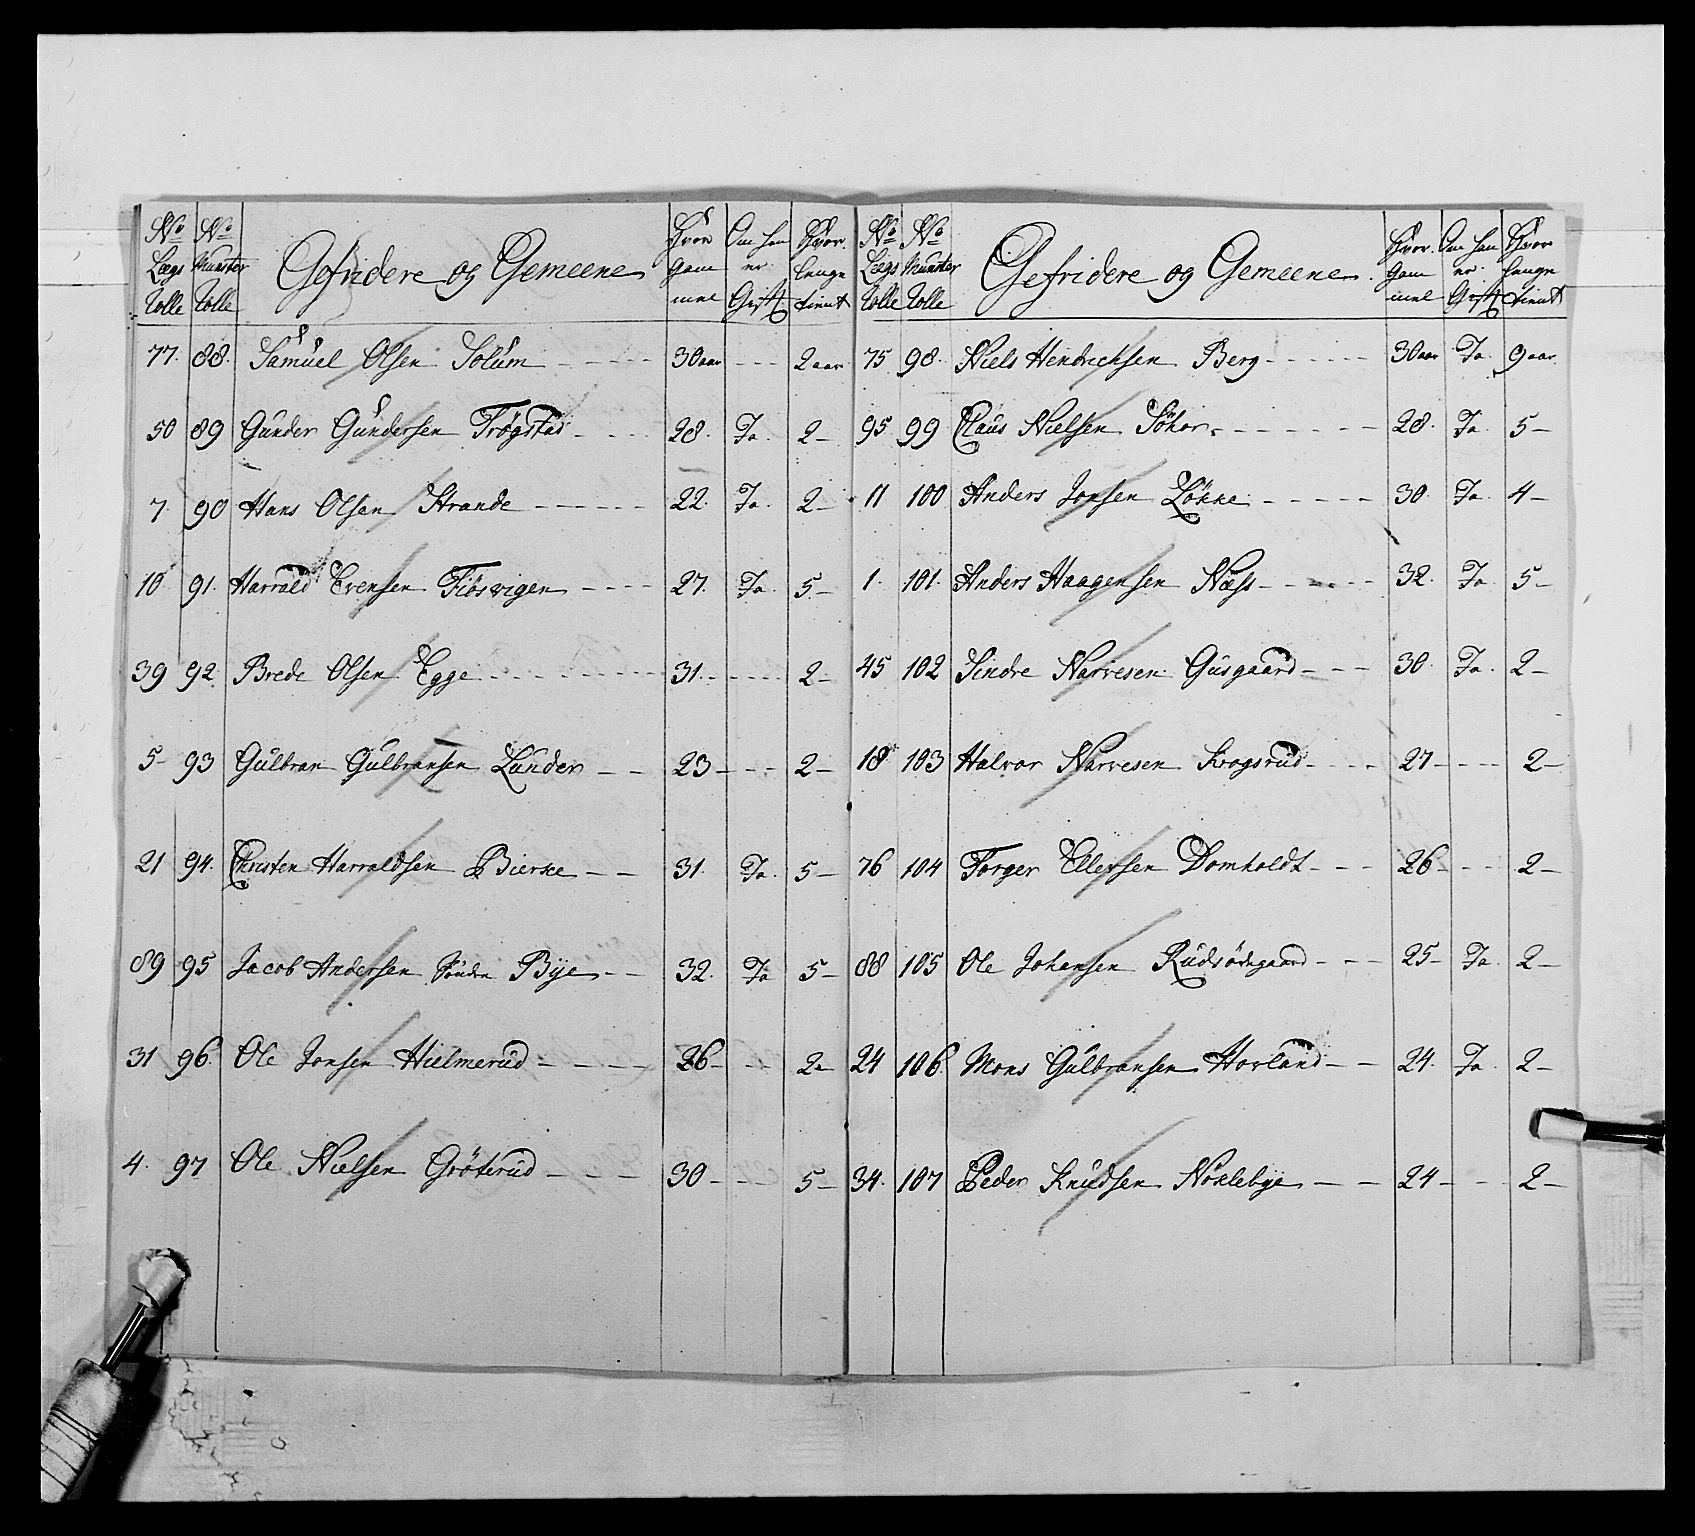 No Lægs Rolle | No Munster Rolle | Gefridere og Gemeene | Hvor Gam mel | Om han er Gift | Hvor lenge tient
77. 88. Samuel Olsen Solum 30 aar --- 2 aar
50 89 Gunder Gundersen Trøgstad 28. Ja. 2
7. 90 Hans Olsen Strande 22. Ja. 2
10. 91. Harrald Evensen Fiøsvigen 27. Ja. 5
39 92. Brede Olsen Egge 31. --- 2
5 93 Gulbran Gulbransen Lunder 23 --- 2
21 94. Christen Harraldsen Bierke 31. Ja. 5
89 95 Jacob Andersen Søndre Bye 32. Ja 5
31 96. Ole Jonsen Hielmerud 26 --- 2
4. 97 Ole Nielsen Grøterud 30 --- 5
No Lægs Rolle | No Munster Rolle | Gefridere og Gemeene | Hvor Gam mel | Om han er Gift | Hvor lenge tient
75 98. Niels Hendrichsen Berg 30 aar Ja 9 aar
95 99 Claus Nielsen 28. Ja. 5
11 100 Anders Jonsen Løkke 30. Ja. 4
1. 101. Anders Haagensen Næss 32. Ja. 5
45 102 Sindre Narvesen Gusgaard 30. Ja. 2
18 103 Halvor Narvesen Krogsrud 27 --- 2
76 104 Torger Ellersen Domholdt 26 --- 2
88 105 Ole Johansen Rudsødegaard 25 Ja. 2
24 106 Mons Gulbransen Hovland 24. Ja. 2
34. 107 Peder Knudsen Noxlebye 24 --- 2